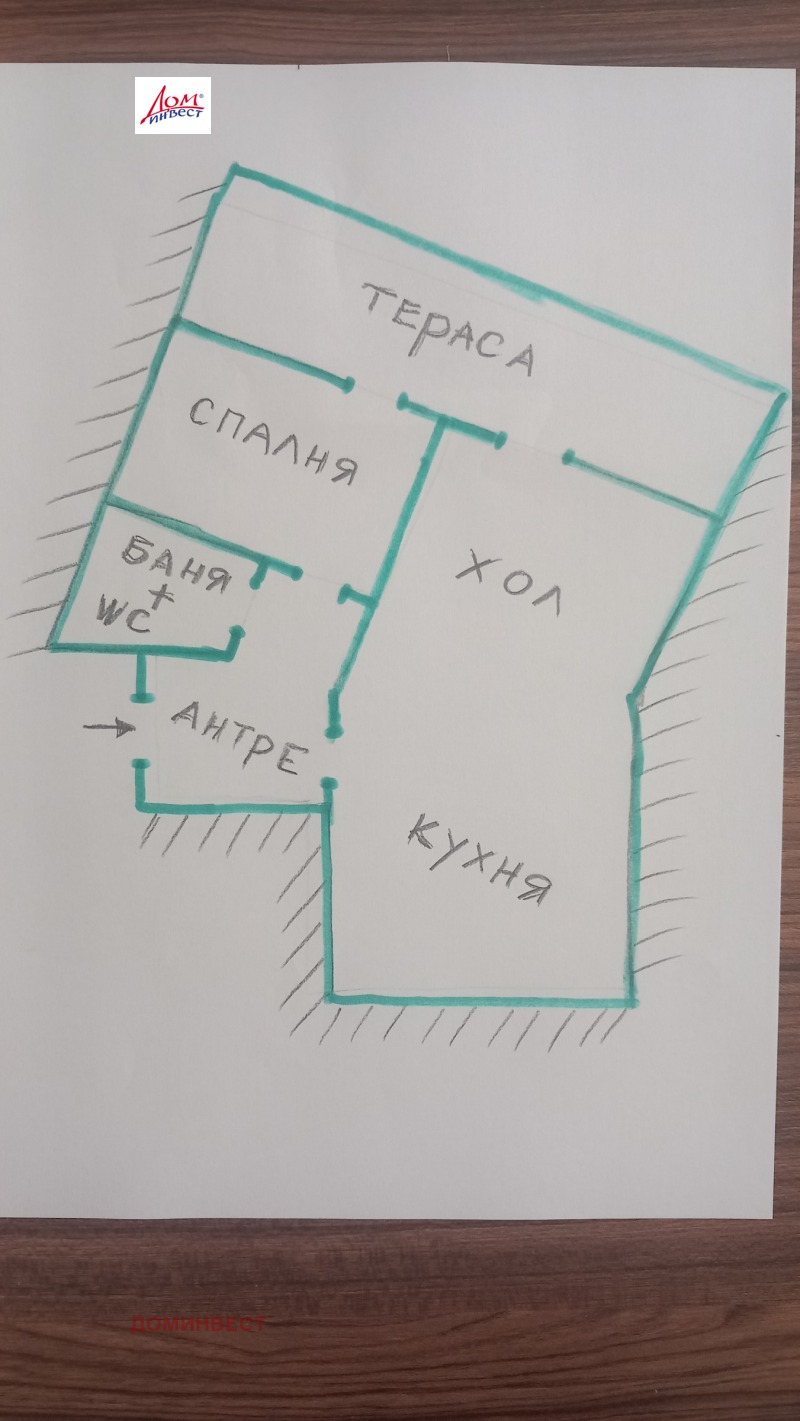 ДОМ®
ИНВЕСТ
ТЕРАСА
СПАЛНЯ
ХОЛ
БАНЯ
+
WC
АНТРЕ
КУХНЯ
ДОМИНВЕСТ